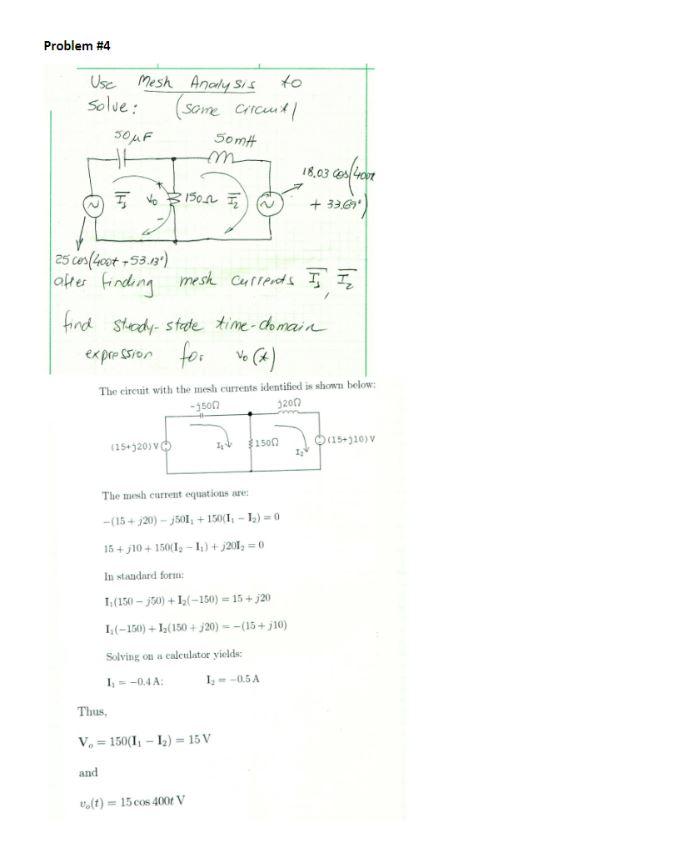 Problem #4
Use Mesh Analysis to
Solve: (same circuit)
50μF 50mH
18.03 cos(400t
+ 33.69°)
I₁ V₀ 150Ω I₂
+
-
25 cos(400t + 53.13°)
after finding mesh currents I₁, I₂
find steady-state time-domain
expression for v₀(t)
The circuit with the mesh currents identified is shown below:
-j50Ω j20Ω
(15+j20)V I₁ 150Ω I₂ (15+j10)V
The mesh current equations are:
−(15 + j20) − j50I₁ + 150(I₁ − I₂) = 0
15 + j10 + 150(I₂ − I₁) + j20I₂ = 0
In standard form:
I₁(150 − j50) + I₂(−150) = 15 + j20
I₁(−150) + I₂(150 + j20) = −(15 + j10)
Solving on a calculator yields:
I₁ = −0.4 A; I₂ = −0.5 A
Thus,
Vₒ = 150(I₁ − I₂) = 15 V
and
vₒ(t) = 15 cos 400t V